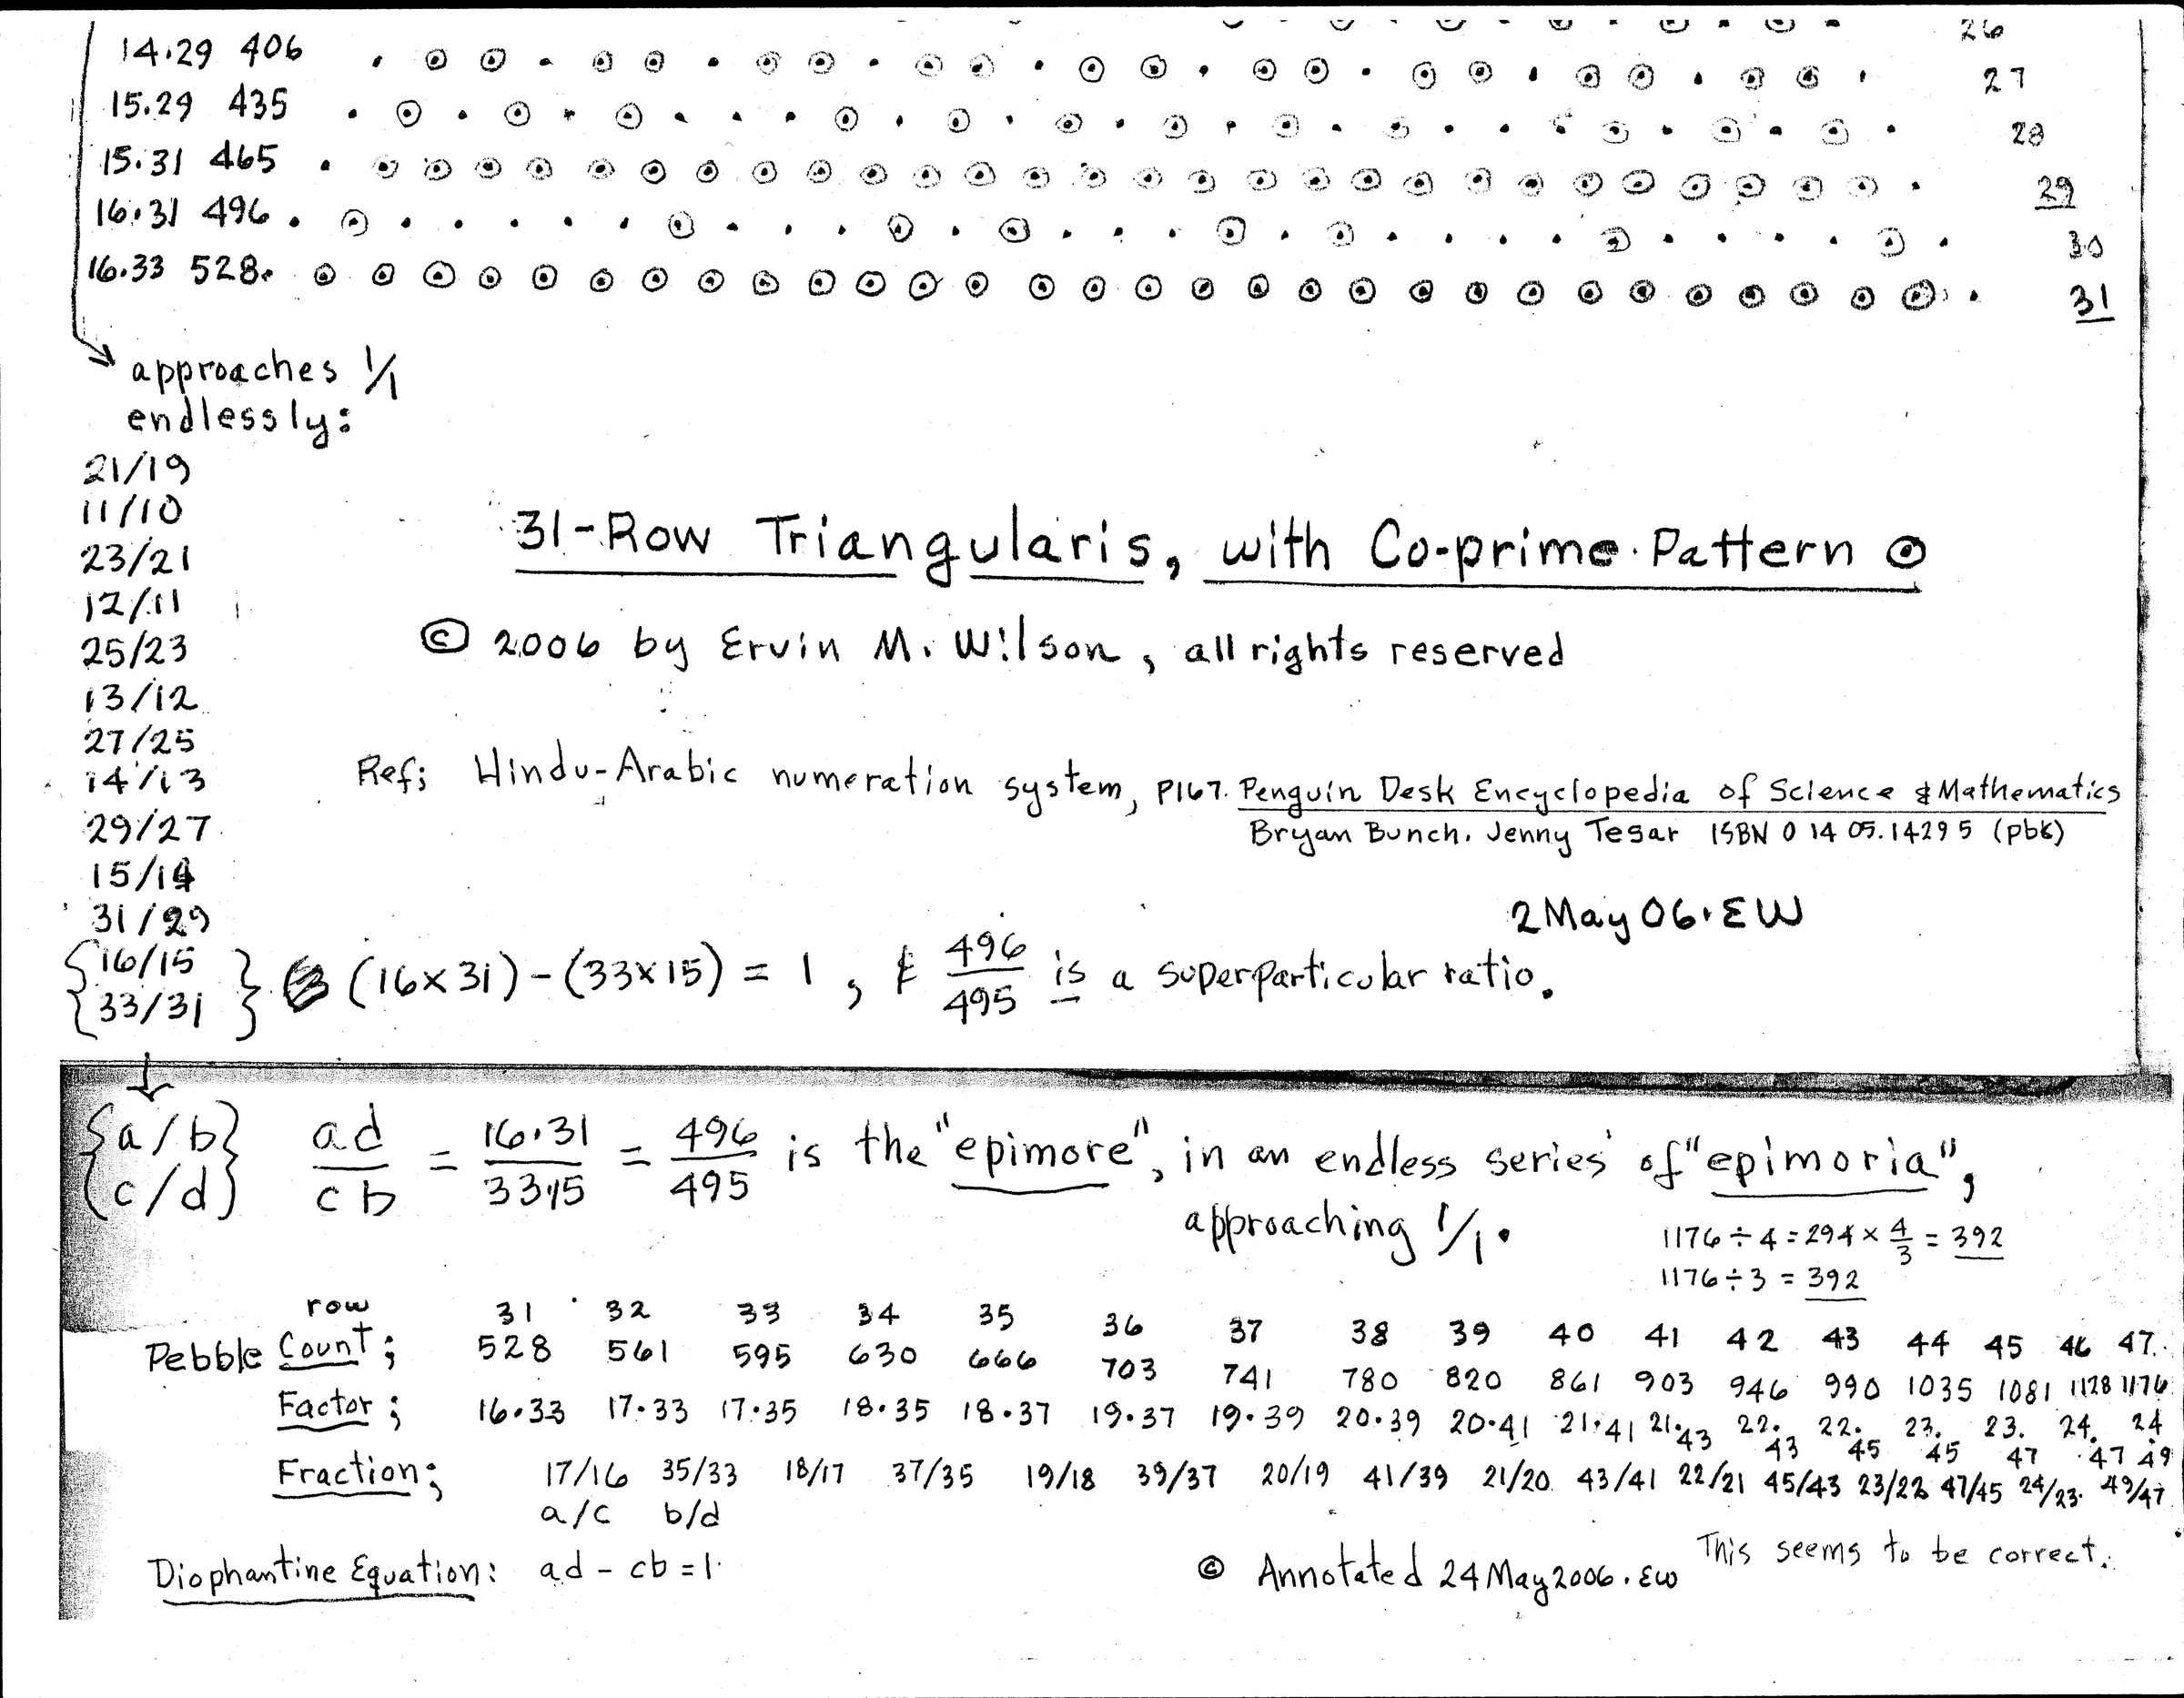 26
14.29 406 27
15.29 435 28
15.31 465 29
16.31 496 30
16.33 528 31
approaches 1/1
endlessly:
21/19
11/10
23/21
12/11
25/23
13/12
27/25
14/13
29/27
15/14
31/29
31-Row Triangularis, with Co-prime Pattern ⊙
© 2006 by Ervin M. Wilson, all rights reserved
Ref; Hindu-Arabic numeration system, P167. Penguin Desk Encyclopedia of Science & Mathematics
Bryan Bunch. Jenny Tesar ISBN 0 14 05.1429 5 (pbk)
2 May 06. EW
{16/15
33/31} (16×31) - (33×15) = 1, & 496/495 is a superparticular ratio.
{a/b
c/d} ad/cb = 16.31/33.15 = 496/495 is the "epimore", in an endless series of "epimoria",
approaching 1/1.
1176 ÷ 4 = 294 × 4/3 = 392
1176 ÷ 3 = 392
row 31 32 33 34 35 36 37 38 39 40 41 42 43 44 45 46 47
Pebble Count; 528 561 595 630 666 703 741 780 820 861 903 946 990 1035 1081 1128 1176
Factor; 16.33 17.33 17.35 18.35 18.37 19.37 19.39 20.39 20.41 21.41 21.43 22.43 22.45 23.45 23.47 24.47 24.49
Fraction; 17/16 35/33 18/17 37/35 19/18 39/37 20/19 41/39 21/20 43/41 22/21 45/43 23/22 47/45 24/23 49/47
a/c b/d
Diophantine Equation: ad - cb = 1
© Annotated 24 May 2006. EW This seems to be correct.